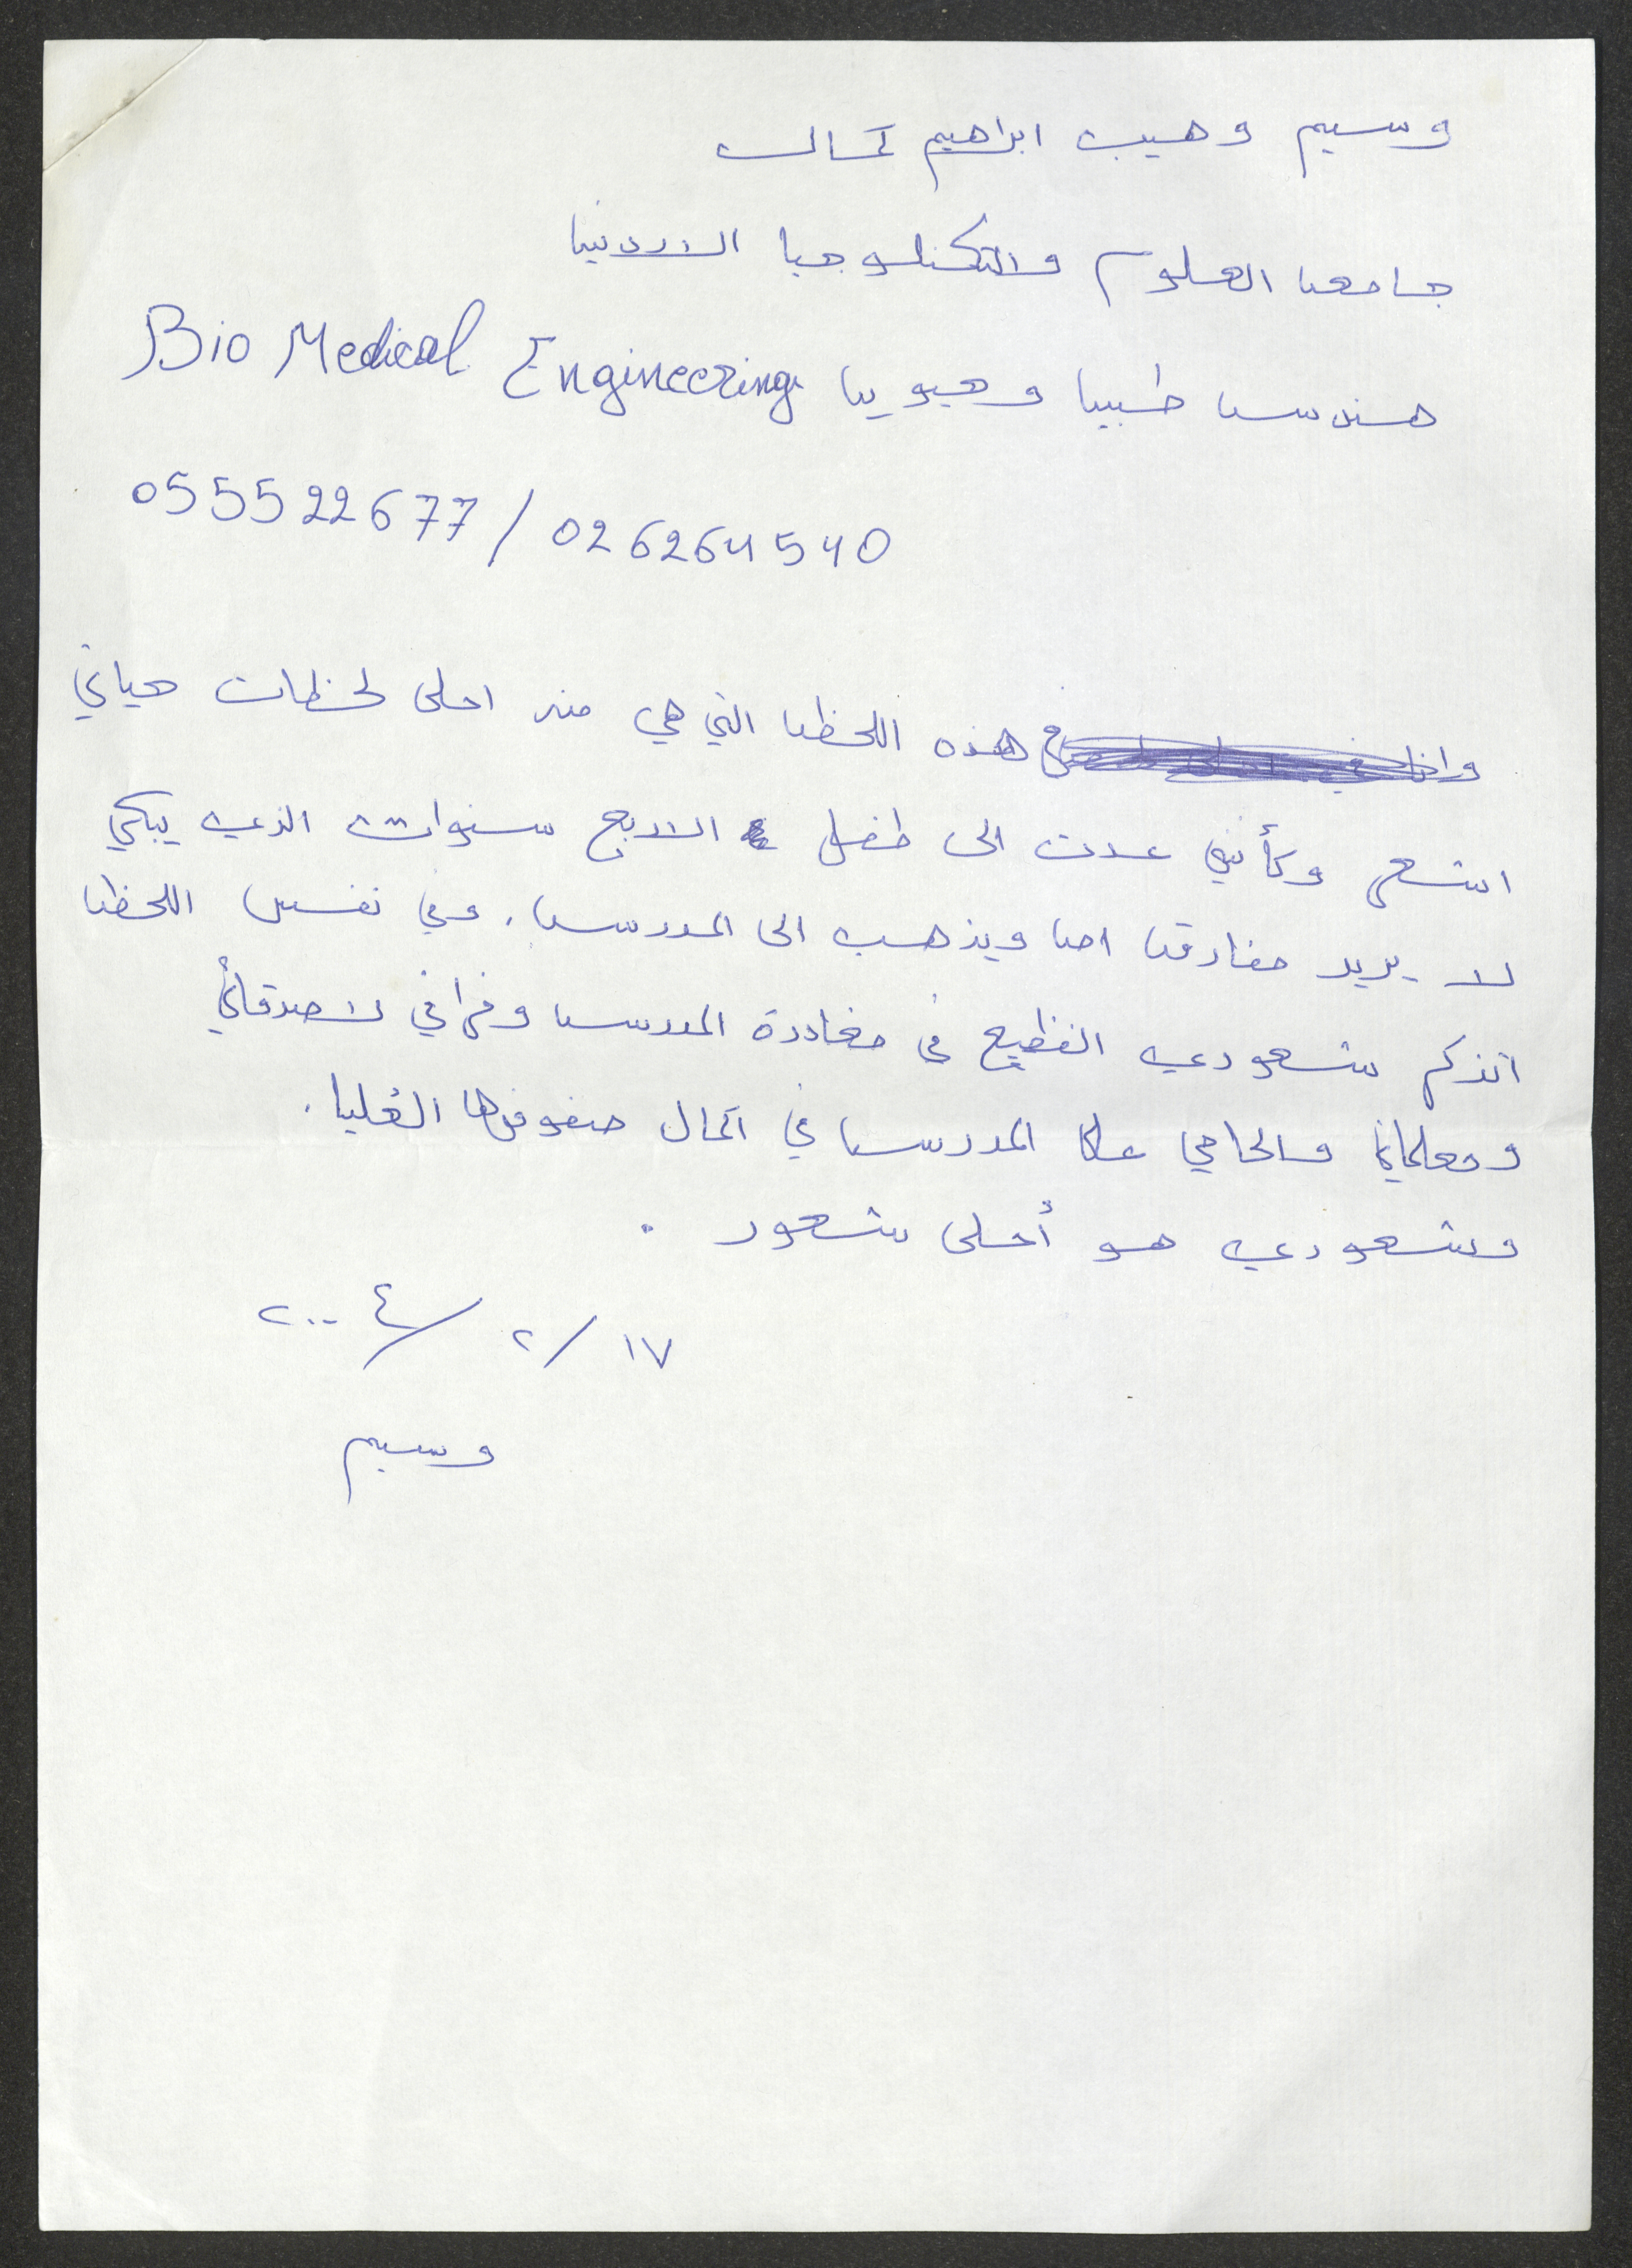 وسيم وهيب ابراهيم كمال
جامعة العلوم والتكنلوجيا الاردنية
هندسة طبية وحيوية Bio Medical Engineering
055522677 / 026264540
في هذه اللحظة التي هي من احلى لحظات حياتي
اشعر وكأنني عدت الى طفل الاربع سنوات الذي يبكي
لا يريد مفارقة امه ويذهب الى المدرسة. وفي نفس اللحظة
اتذكر شعوري الفظيع في مغادرة المدرسة وفراقي لاصدقائي
ومعلماتي والحاحي على المدرسة في اكمال صفوفها العُليا.
وشعوري هو أحلى شعور.
١٧ / ٢ / ٢٠٠٤
وسيم